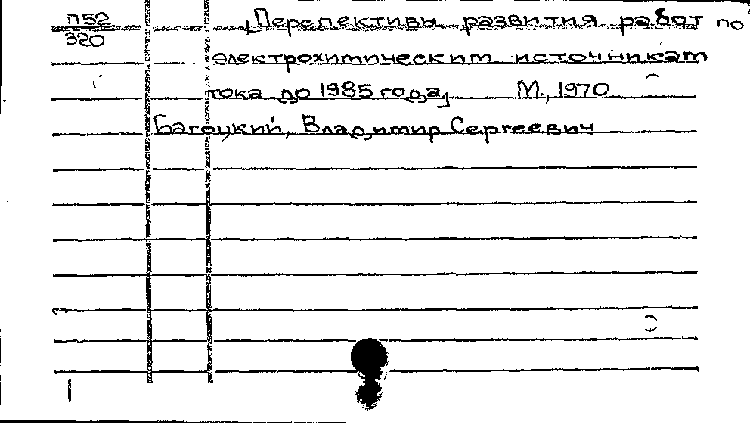 П52
320
[Перспективы развития работ по
электрохимическим источникам
тока до 1985 года] М., 1970
Багоцкий, Владимир Сергеевич